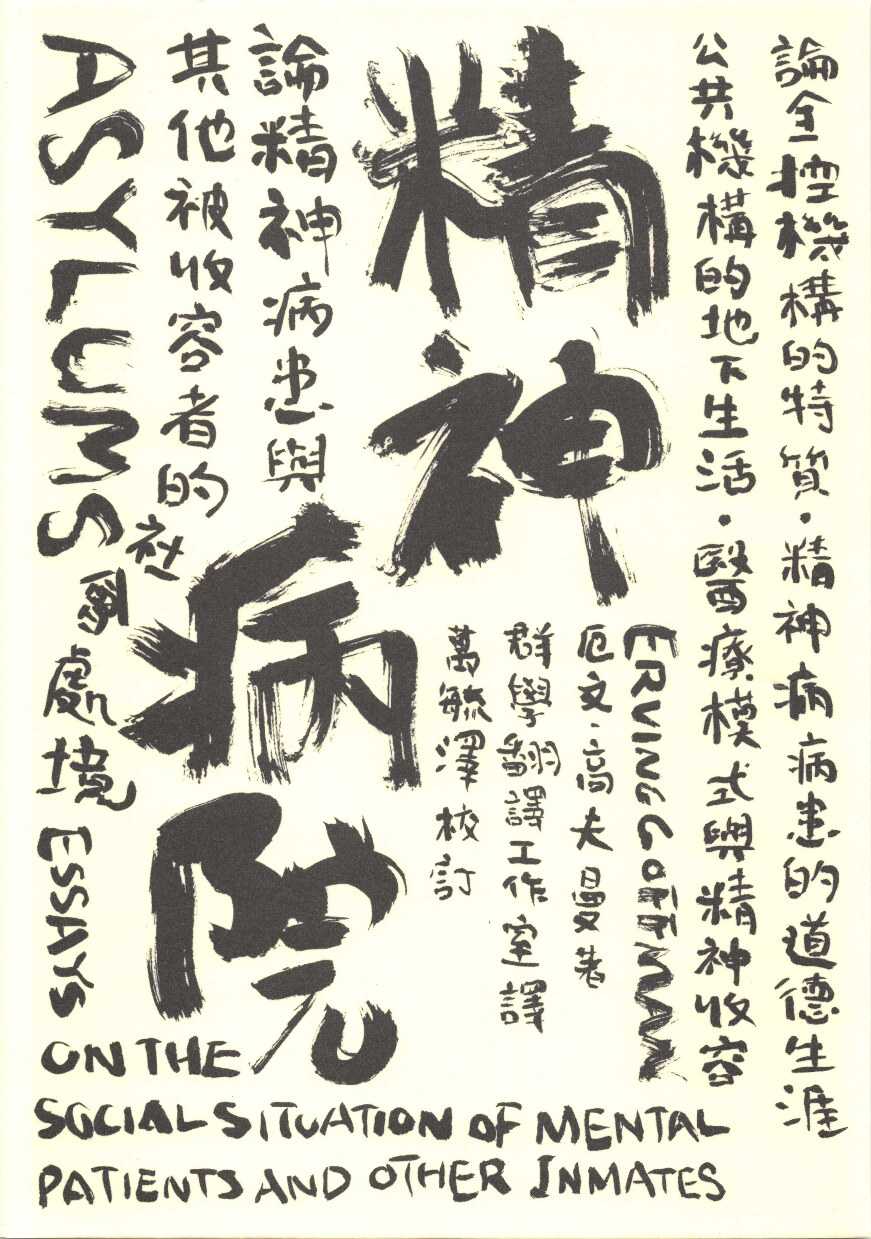 論全控機構的特質·精神病病患的道德生涯
公共機構的地下生活·醫療模式與精神收容
精神
病院
ERVING GOFFMAN
厄文·高夫曼 著
群學翻譯工作室 譯
萬毓澤 校訂
論精神病患與
其他被收容者的社會處境
ASYLUMS
ESSAYS
ON THE
SOCIAL SITUATION OF MENTAL
PATIENTS AND OTHER INMATES